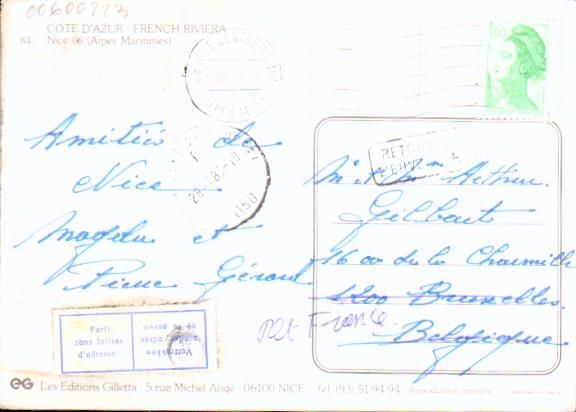 00600223
COTE D'AZUR - FRENCH RIVIERA
84. Nice 06 (Alpes Maritimes)
1,60
Amitiés de
Nice
Magda et
Pierre Gérard
RETOUR
Arthur
Gilbart
16 av de la Charmille
1200 Bruxelles.
Belgique.
ret France.
1150
Parti
sans laisser
d'adresse
Vertrokken
zonder adres
op te geven
EG Les Editions Gilletta - 5 rue Michel Ange - 06100 NICE tel. (93) 51-94-94 Reproduction interdite